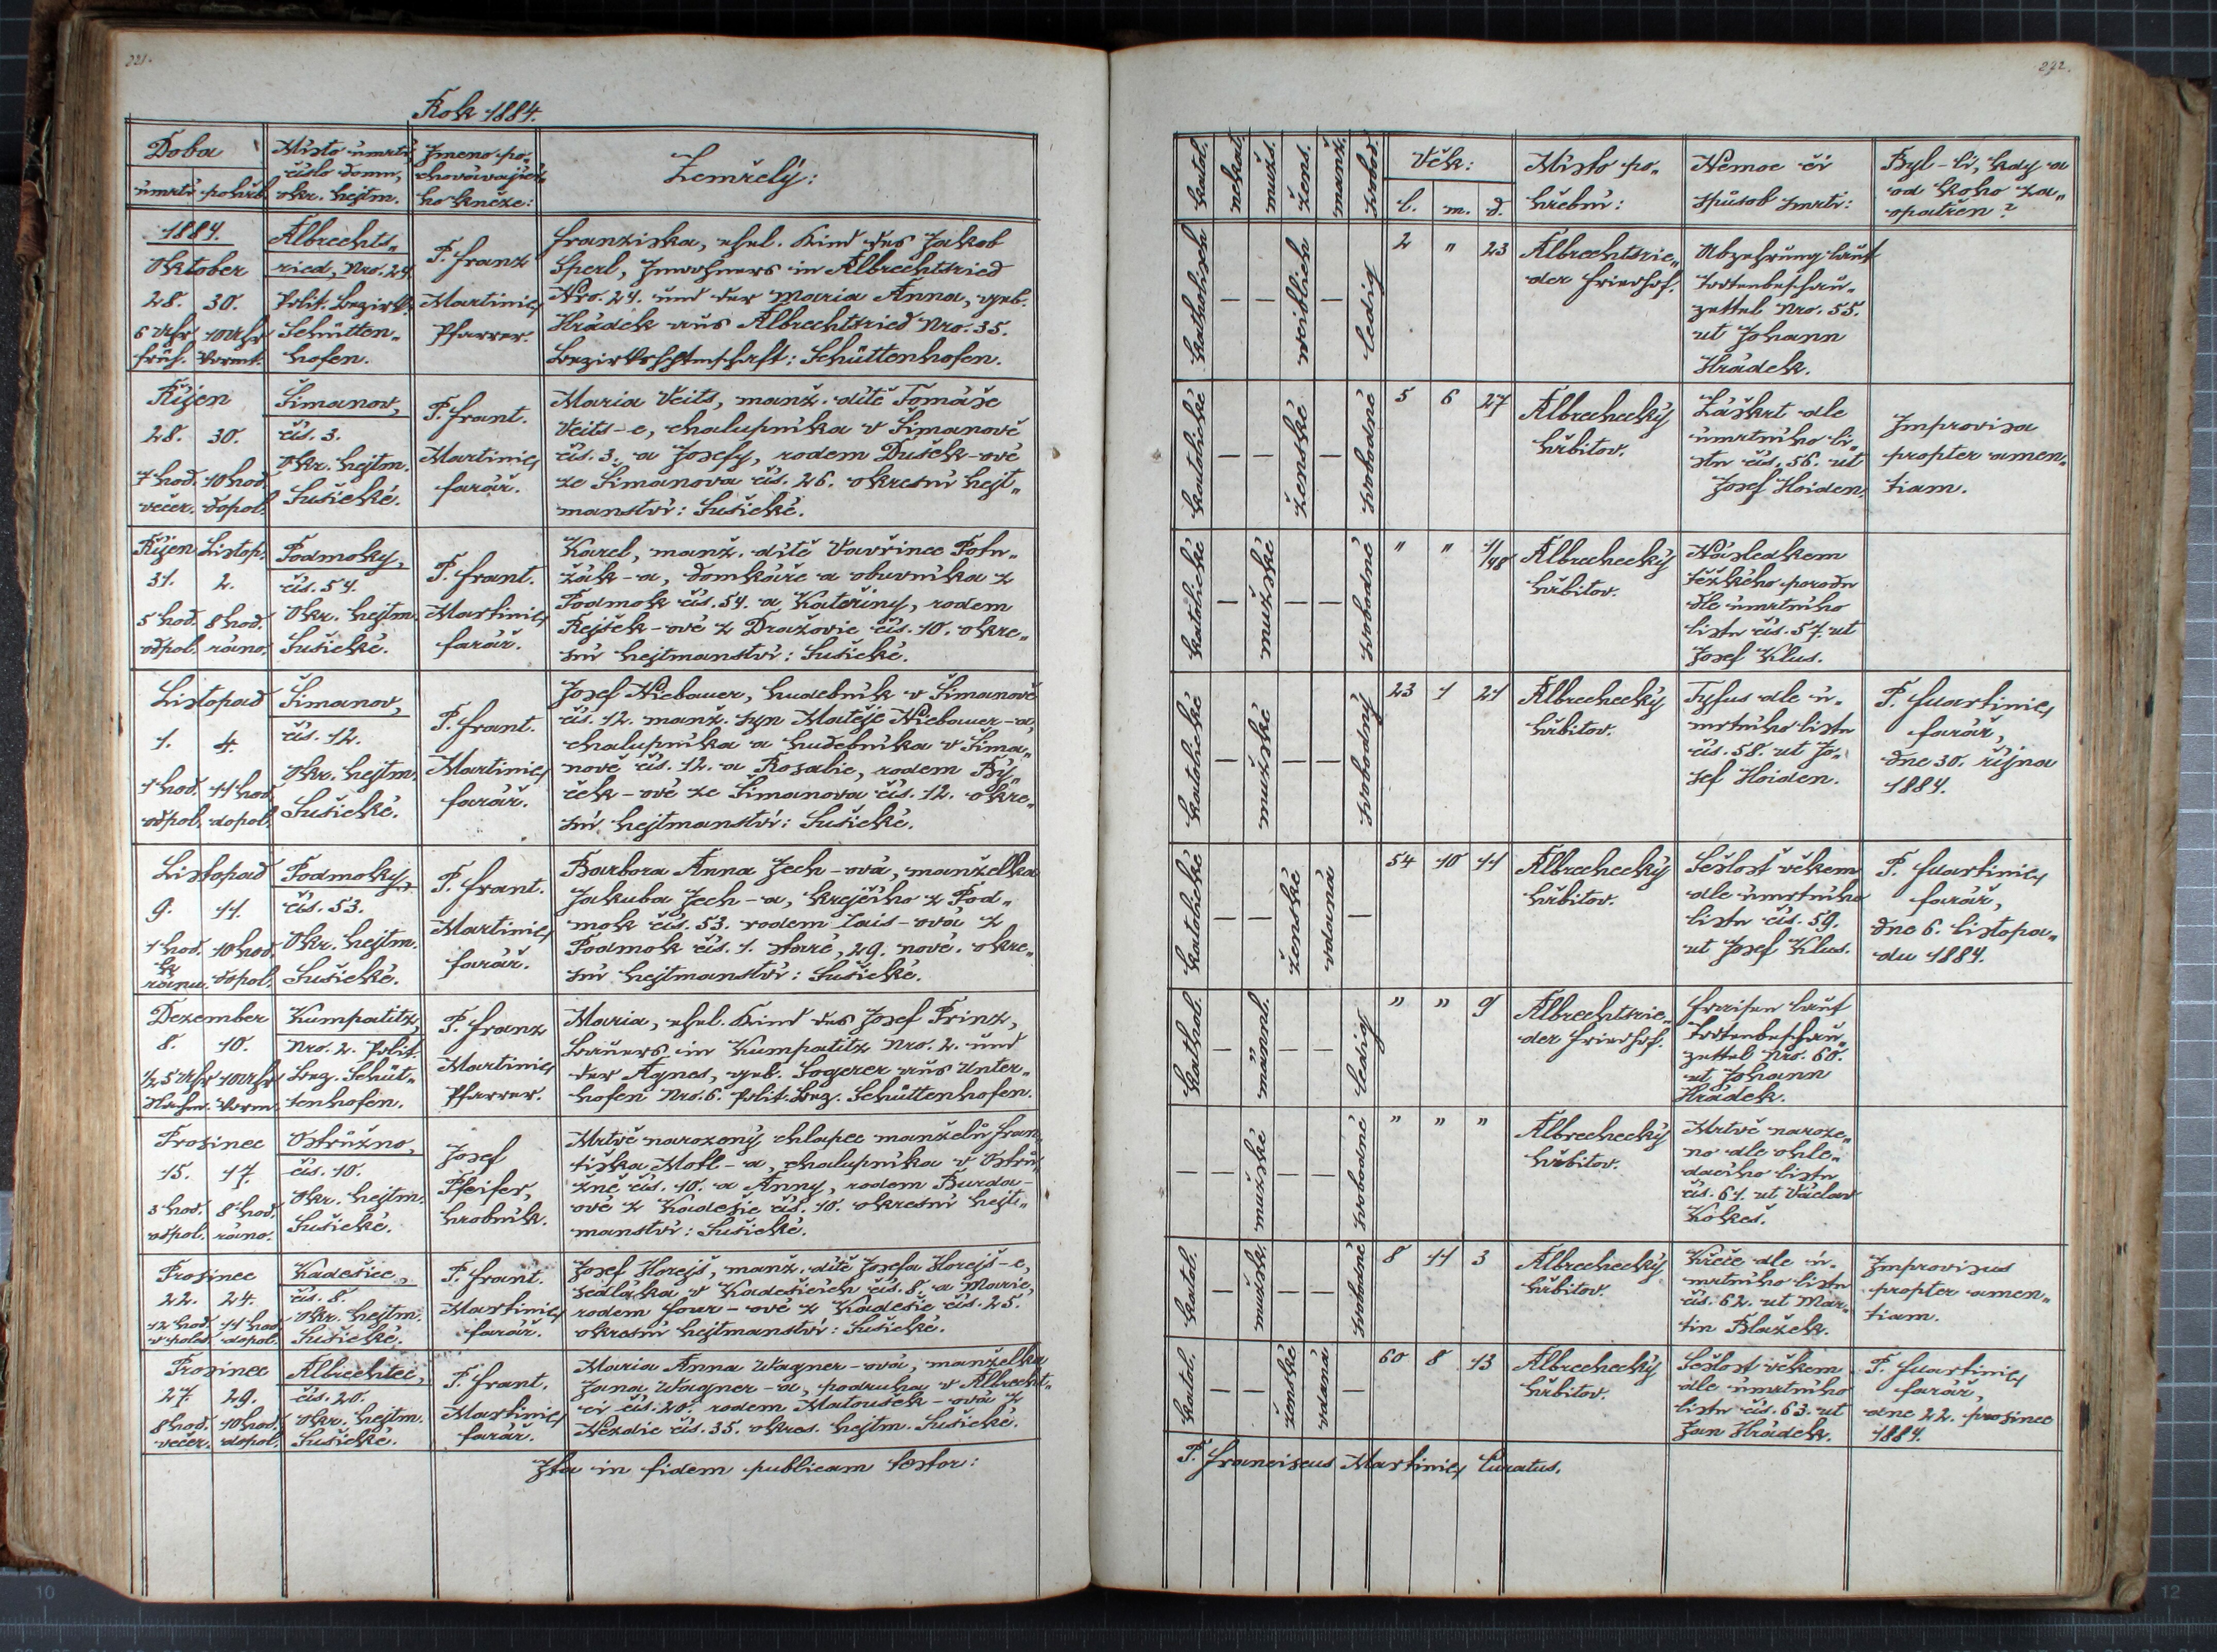 221.
Rok 1884.
Doba
úmrtí pohřb.
Místo úmrtí,
číslo domu,
okr. hejtm.
Jmeno po-
chovávající-
ho kněze:
Zemřelý:
1884.
Oktober
28. 30.
6 Uhr 10 Uhr
früh. Vormt.
Albrechts-
ried, Nro. 24.
Polit. Bezirk
Schütten-
hofen.
P. Franz
Martinic,
Pfarrer.
Franziska, ehel. Kind des Jakob
Sperl, Inwohners in Albrechtsried
Nro. 24. und der Maria Anna, geb.
Hrádek aus Albrechtsried Nro. 35.
Bezirkshptmschaft: Schüttenhofen.
Říjen
28. 30.
7 hod. 10 hod.
večer. dopol.
Šimanov,
čís. 3.
Okr. hejtm.
Sušické.
P. Frant.
Martinic,
farář.
Maria Veits, manž. dítě Tomáše
Veits-e, chalupníka v Šimanově
čís. 3. a Josefy, rodem Dušek-ové
ze Šimanova čís. 26. okresní hejt-
manství: Sušické.
Říjen Listop.
31. 2.
5 hod. 8 hod.
odpol. ráno.
Podmoky,
čís. 54.
Okr. hejtm.
Sušické.
P. Frant.
Martinic,
farář.
Karel, manž. dítě Vavřince Potu-
žák-a, domkáře a obuvníka z
Podmok čís. 54. a Kateřiny, rodem
Rejšek-ové z Dražovic čís. 10. okre-
sní hejtmanství: Sušické.
Listopad
1. 4.
1 hod. 11 hod.
odpol. dopol.
Šimanov,
čís. 12.
Okr. hejtm.
Sušické.
P. Frant.
Martinic,
farář.
Josef Niebauer, hudebník v Šimanově
čís. 12. manž. syn Matěje Niebauer-a,
chalupníka a hudebníka v Šima-
nově čís. 12. a Rosalie, rodem Bý-
ček-ové ze Šimanova čís. 12. okre-
sní hejtmanství: Sušické.
Listopad
9. 11.
1 hod. 10 hod.
k
ránu. dopol.
Podmoky,
čís. 53.
Okr. hejtm.
Sušické.
P. Frant.
Martinic,
farář.
Barbora Anna Zech-ová, manželka
Jakuba Zech-a, krejčího z Pod-
mok čís. 53. rodem Cais-ová z
Podmok čís. 1. staré, 29. nové. okre-
sní hejtmanství: Sušické.
Dezember
8. 10.
1/2 5 Uhr 10 Uhr
Nachm. Vorm.
Kumpatitz,
Nro. 2. Polit.
Bez. Schüt-
tenhofen.
P. Franz
Martinic,
Pfarrer.
Maria, ehel. Kind des Josef Prinz,
Bauers in Kumpatitz Nro. 2. und
der Agnes, geb. Sogerer aus Unter-
hofen Nro. 6. Polit. Bez. Schüttenhofen.
Prosinec
15. 17.
3 hod. 8 hod.
odpol. ráno.
Ostružno,
čís. 10.
Okr. hejtm.
Sušické.
Josef
Pfeifer,
hrobník.
Mrtvě narozený chlapec manželů Fran-
tiška Motl-a, chalupníka v Ostru-
žně čís. 10. a Anny, rodem Burda-
ové z Kadešic čís. 10. okresní hejt-
manství: Sušické.
Prosinec
22. 24.
12 hod. 11 hod.
v poled. dopol.
Kadešice,
čís. 8.
Okr. hejtm.
Sušické.
P. Frant.
Martinic,
farář.
Josef Horejš, manž. dítě Josefa Horejš-e,
sedláka v Kadešicích čís. 8. a Marie,
rodem Four-ové z Kadešic čís. 25.
okresní hejtmanství: Sušické.
Prosinec
27. 29.
8 hod. 10 hod.
večer. dopol.
Albrechtec,
čís. 20.
Okr. hejtm.
Sušické.
P. Frant.
Martinic,
farář.
Maria Anna Wagner-ová, manželka
Jana Wagner-a, podruha v Albrecht-
ci čís. 20. rodem Matoušek-ová z
Nezdic čís. 35. okres. hejtm. Sušické.
Ita in fidem publicam testor:
222.
katol.
nekatol.
mužs.
žens.
manž.
svobod.
Věk:
l. m. d.
Místo po-
hřební:
Nemoc či
spůsob smrti:
Byl-li, kdy a
od koho za-
opatřen?
katholisch
—
—
weiblich
—
ledig
2 " 23
Albrechtsrie-
der Friedhof.
Abzehrung laut
Todtenbeschau-
zettel Nro. 55.
ut Johann
Hrádek.
katolické
—
—
ženské
—
svobodné
5 6 27
Albrechecký
hřbitov.
Záškrt dle
úmrtního li-
stu čís. 56. ut
Josef Hoiden.
Improvisa
propter amen-
tiam.
katolické
—
mužské
—
—
svobodné
" " 1/48
Albrechecký
hřbitov.
Následkem
těžkého porodu
dle úmrtního
listu čís. 57. ut
Josef Klus.
katolické
—
mužské
—
—
svobodný
23 1 21
Albrechecký
hřbitov.
Tyfus dle ú-
mrtního listu
čís. 58. ut Jo-
sef Hoiden.
P. Martinic,
farář,
dne 30. října
1884.
katolické
—
—
ženské
vdaná
—
54 10 11
Albrechecký
hřbitov.
Sešlost věkem
dle úmrtního
listu čís. 59.
ut Josef Klus.
P. Martinic,
farář,
dne 6. listopa-
du 1884.
kathol.
—
männl.
—
—
ledig
" " 9
Albrechtsrie-
der Friedhof.
Fraisen laut
Todtenbeschau-
zettel Nro. 60.
ut Johann
Hrádek.
—
—
mužské
—
—
svobodné
" " "
Albrechecký
hřbitov.
Mrtvě naroze-
no dle ohle-
dacího listu
čís. 61. ut Václav
Kokeš.
katol.
—
mužsk.
—
—
svobodné
8 11 3
Albrechecký
hřbitov.
Křeče dle ú-
mrtního listu
čís. 62. ut Mar-
tin Blažek.
Improvisus
propter amen-
tiam.
katol.
—
—
ženské
vdaná
—
60 8 13
Albrechecký
hřbitov.
Sešlost věkem
dle úmrtního
listu čís. 63. ut
Jan Hrádek.
P. Martinic,
farář,
dne 22. prosince
1884.
P. Franciscus Martinic, Curatus.
10
12